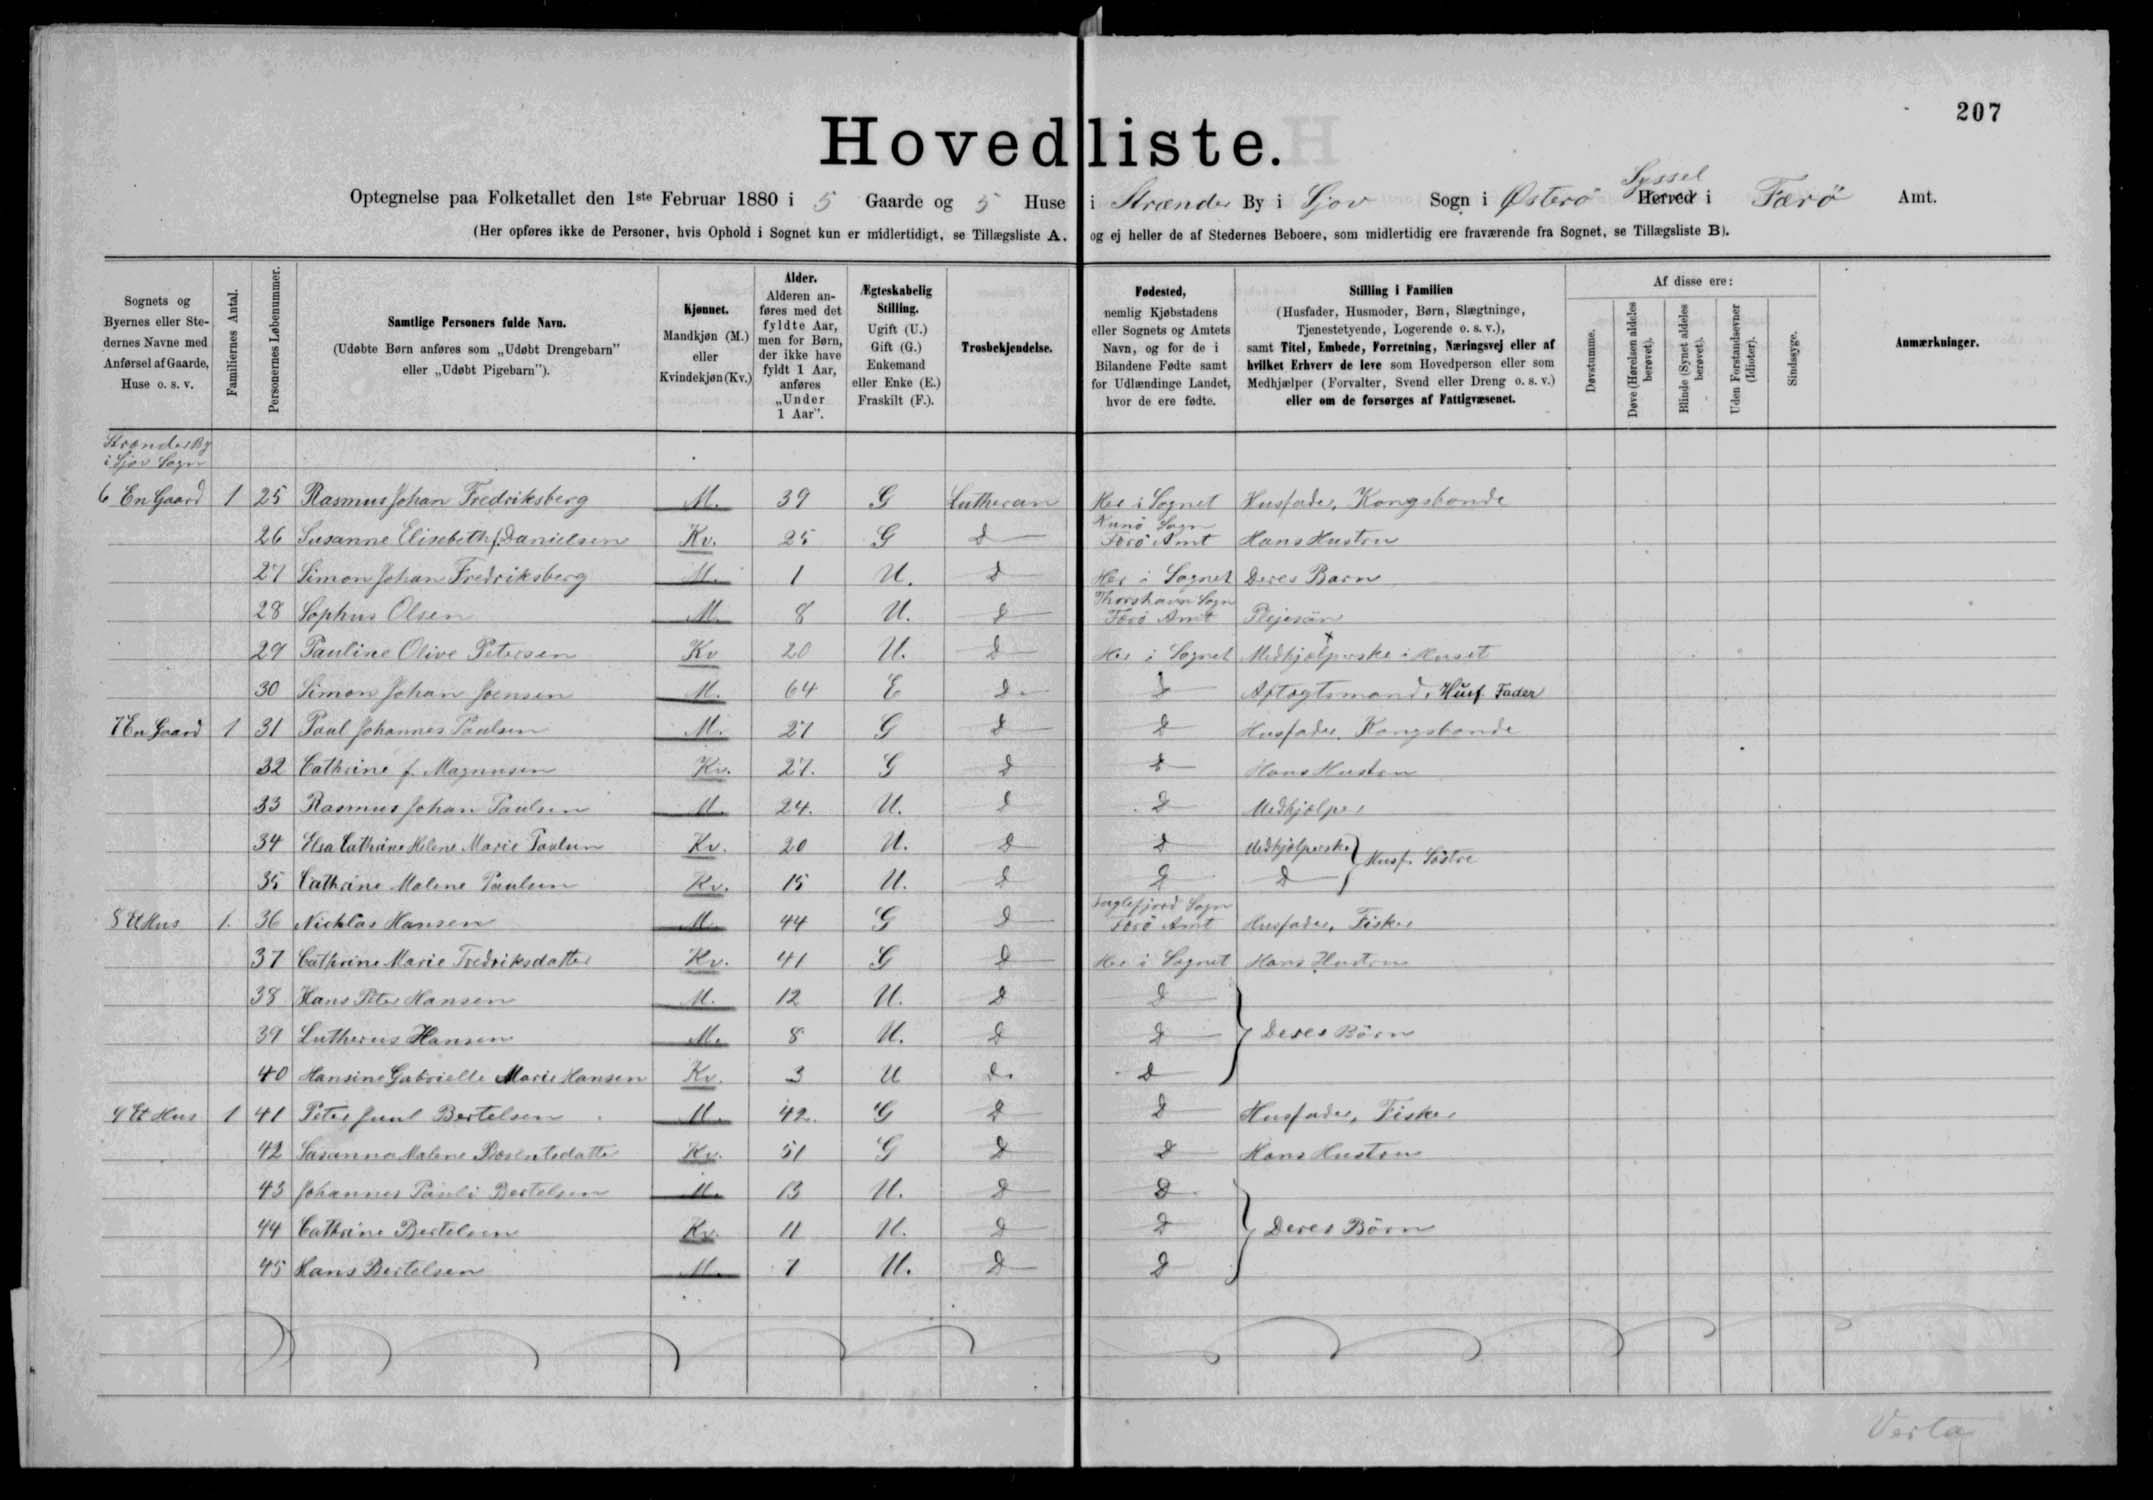 207
Hovedliste.
Optegnelse paa Folketallet den 1ste Februar 1880 i 5 Gaarde og 5 Huse i Strænder By i Sjov Sogn i Østerö Syssel Herred i Færö Amt.
(Her opføres ikke de Personer, hvis Ophold i Sognet kun er midlertidigt, se Tillægsliste A, og ej heller de af Stedernes Beboere, som midlertidig ere fraværende fra Sognet, se Tillægsliste B).
Sognets og Byernes eller Stedernes Navne med Anførsel af Gaarde, Huse o. s. v.
Familiernes Antal.
Personernes Løbenummer.
Samtlige Personers fulde Navn. (Udøbte Børn anføres som „Udøbt Drengebarn" eller „Udøbt Pigebarn").
Kjønnet. Mandkjøn (M.) eller Kvindekjøn (Kv.)
Alder. Alderen anføres med det fyldte Aar, men for Børn, der ikke have fyldt 1 Aar, anføres „Under 1 Aar".
Ægteskabelig Stilling. Ugift (U.) Gift (G.) Enkemand eller Enke (E.) Fraskilt (F.).
Trosbekjendelse.
Fødested, nemlig Kjøbstadens eller Sognets og Amtets Navn, og for de i Bilandene Fødte samt for Udlændinge Landet, hvor de ere fødte.
Stilling i Familien (Husfader, Husmoder, Børn, Slægtninge, Tjenestetyende, Logerende o. s. v.), samt Titel, Embede, Forretning, Næringsvej eller af hvilket Erhverv de leve som Hovedperson eller som Medhjælper (Forvalter, Svend eller Dreng o. s. v.) eller om de forsørges af Fattigvæsenet.
Af disse ere:
Døvstumme.
Døve (Hørelsen aldeles berøvet).
Blinde (Synet aldeles berøvet).
Uden Forstandsevner (Idioter).
Sindssyge.
Anmærkninger.
Strænder By
i Sjov Sogn
6 En Gaard 1 25 Rasmus Johan Fredriksberg M. 39 G Lutheran Her i Sognet Husfader, Kongsbonde
26 Susanne Elisebeth f. Danielsen Kv. 25 G D Kunö Sogn Færö Amt Hans Hustru
27 Simon Johan Fredriksberg M. 1 U. D Her i Sognet Deres Barn
28 Sophus Olsen M. 8 U. D Thorshavn Sogn Færö Amt Plejesön
29 Pauline Olive Petersen Kv 20 U. D Her i Sognet Medhjælperske i Huset
30 Simon Johan Joensen M. 64 E D. D Aftægtsmand, Husf. Fader
7 En Gaard 1 31 Paul Johannes Paulsen M. 27 G D D Husfader, Kongsbonde
32 Cathrine f. Magnusen Kv. 27. G D D Hans Hustru
33 Rasmus Johan Paulsen M. 24. U. D D Medhjælper
34 Elsa Cathrine Helene Marie Paulsen Kv. 20 U. D D Medhjælperske } Husf. Söstre
35 Cathrine Malene Paulsen Kv. 15 U. D D D
8 Et Hus 1. 36 Nicklas Hansen M. 44 G D Fuglefjord Sogn Færö Amt Husfader, Fisker
37 Cathrine Marie Fredriksdatter Kv. 41 G D Her i Sognet Hans Hustru
38 Hans Peter Hansen M. 12 U. D D
39 Lutherus Hansen M. 8 U. D D } Deres Börn
40 Hansine Gabrielle Marie Hansen Kv. 3 U D. D
9 Et Hus 1 41 Peter Juul Bertelsen M. 42. G D D Husfader, Fisker
42 Susanna Malene Kv. 51 G D D Hans Hustru
43 Johannes Pauli Bertelsen M. 13 U. D D
44 Cathrine Bertelsen Kv. 11 U. D D } Deres Börn
45 Hans Bertelsen M. 7 U. D D